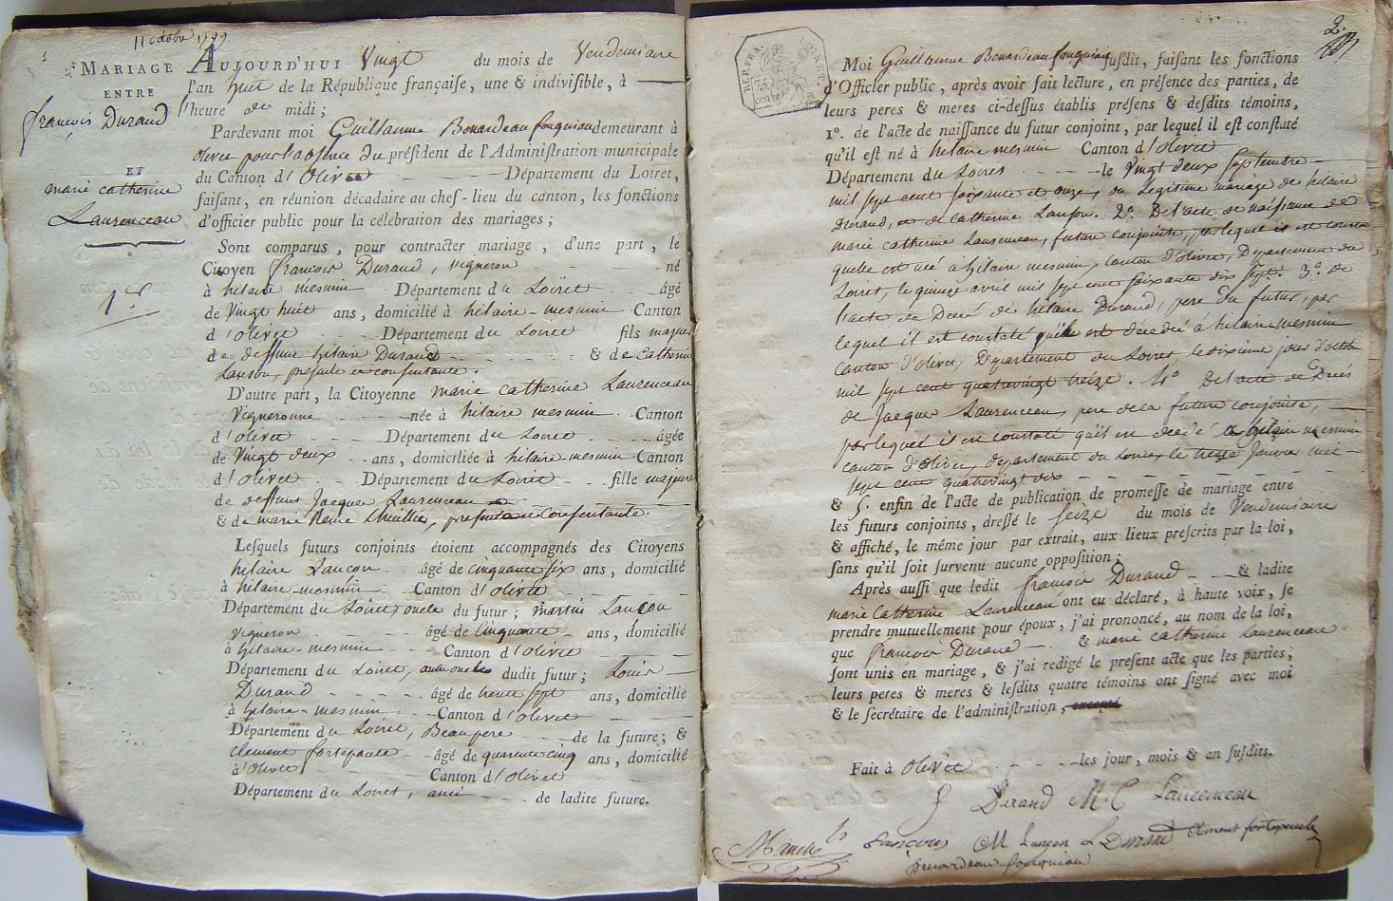 11 octobre 1799
MARIAGE
ENTRE
françois Durand
ET
marie catherine
Laurenceau
1er
AUJOURD'HUI Vingt du mois de Vendemiaire
l'an huit de la République française, une & indivisible, à
l'heure de midi;
Pardevant moi Guillaume Benardeau fouqueau demeurant à
olivet pour l'absence du président de l'Administration municipale
du Canton d'Olivet Département du Loiret,
faisant, en réunion décadaire au chef-lieu du canton, les fonctions
d'officier public pour la célébration des mariages;
Sont comparus, pour contracter mariage, d'une part, le
Citoyen françois Durand, vigneron né
à hilaire mesmin Département du Loiret âgé
de Vingt huit ans, domicilié à hilaire-mesmin Canton
d'olivet Département du Loiret fils majeur
de deffunt hilaire Durand & de Catherine
Lanson, presente et consentante.
D'autre part, la Citoyenne marie catherine Laurenceau
Vigneronne née à hilaire mesmin Canton
d'olivet Département du Loiret âgée
de Vingt deux ans, domiciliée à hilaire mesmin Canton
d'olivet Département du Loiret fille majeure
de deffunt Jacques Laurenceau
& de marie Reine presente et consentante.
Lesquels futurs conjoints étoient accompagnés des Citoyens
hilaire Lançon âgé de cinquante six ans, domicilié
à hilaire-mesmin Canton d'olivet
Département du Loiret, oncle du futur; martin Lançon
vigneron âgé de Cinquante ans, domicilié
à hilaire-mesmin Canton d'olivet
Département du Loiret, aussi oncle dudit futur; Louis
Durand âgé de trente sept ans, domicilié
à hilaire-mesmin Canton d'olivet
Département du Loiret, Beaupere de la future; &
Clement fortepaule âgé de quarente cinq ans, domicilié
à Olivet Canton d'olivet
Département du Loiret, ami de ladite future.
2.
Moi Guillaume Benardeau fouqueau susdit, faisant les fonctions
d'Officier public, après avoir fait lecture, en présence des parties, de
leurs peres & meres ci-dessus établis présens & desdits témoins,
1°. de l'acte de naissance du futur conjoint, par lequel il est constaté
qu'il est né à hilaire mesmin Canton d'olivet
Département du Loiret le Vingt deux septembre
mil sept cent soixante et onze, du légitime mariage de hilaire
durand, et de catherine Lanson. 2°. De l'acte de naissance de
marie catherine Laurenceau, future conjointe, par lequel il est constaté
quelle est née à hilaire mesmin, canton d'olivet, Departement du
Loiret, le quinze avril mil sept cent soixante dix sept. 3°. de
l'acte de Decé de hilaire Durand, pere du futur, par
lequel il est constaté qu'il est decedé à hilaire mesmin
canton d'olivet, Departement du Loiret le dixieme jour d'octobre
mil sept cent quatrevingt treize. 4°. De l'acte de Decés
de Jacque Laurenceau, pere de la future conjointe,
par lequel il est constaté qu'il est decedé à hilaire mesmin
canton d'olivet, departement du Loiret le treize Janvier mil
sept cent quatrevingt dix
& 5. enfin de l'acte de publication de promesse de mariage entre
les futurs conjoints, dressé le seize du mois de Vendemiaire
& affiché, le même jour par extrait, aux lieux prescrits par la loi,
sans qu'il soit survenu aucune opposition;
Après aussi que ledit françois Durand & ladite
marie Catherine Laurenceau ont eu déclaré, à haute voix, se
prendre mutuellement pour époux, j'ai prononcé, au nom de la loi,
que francois Durand & marie catherine Laurenceau
sont unis en mariage, & j'ai redigé le present acte que les parties,
leurs peres & meres & lesdits quatre témoins ont signé avec moi
& le secrétaire de l'administration,
Fait à Olivet les jour, mois & an susdits.
f Durand M. C Laurenceau
M Lançon L Durand Clement fortepaule
benardeau fouqueau